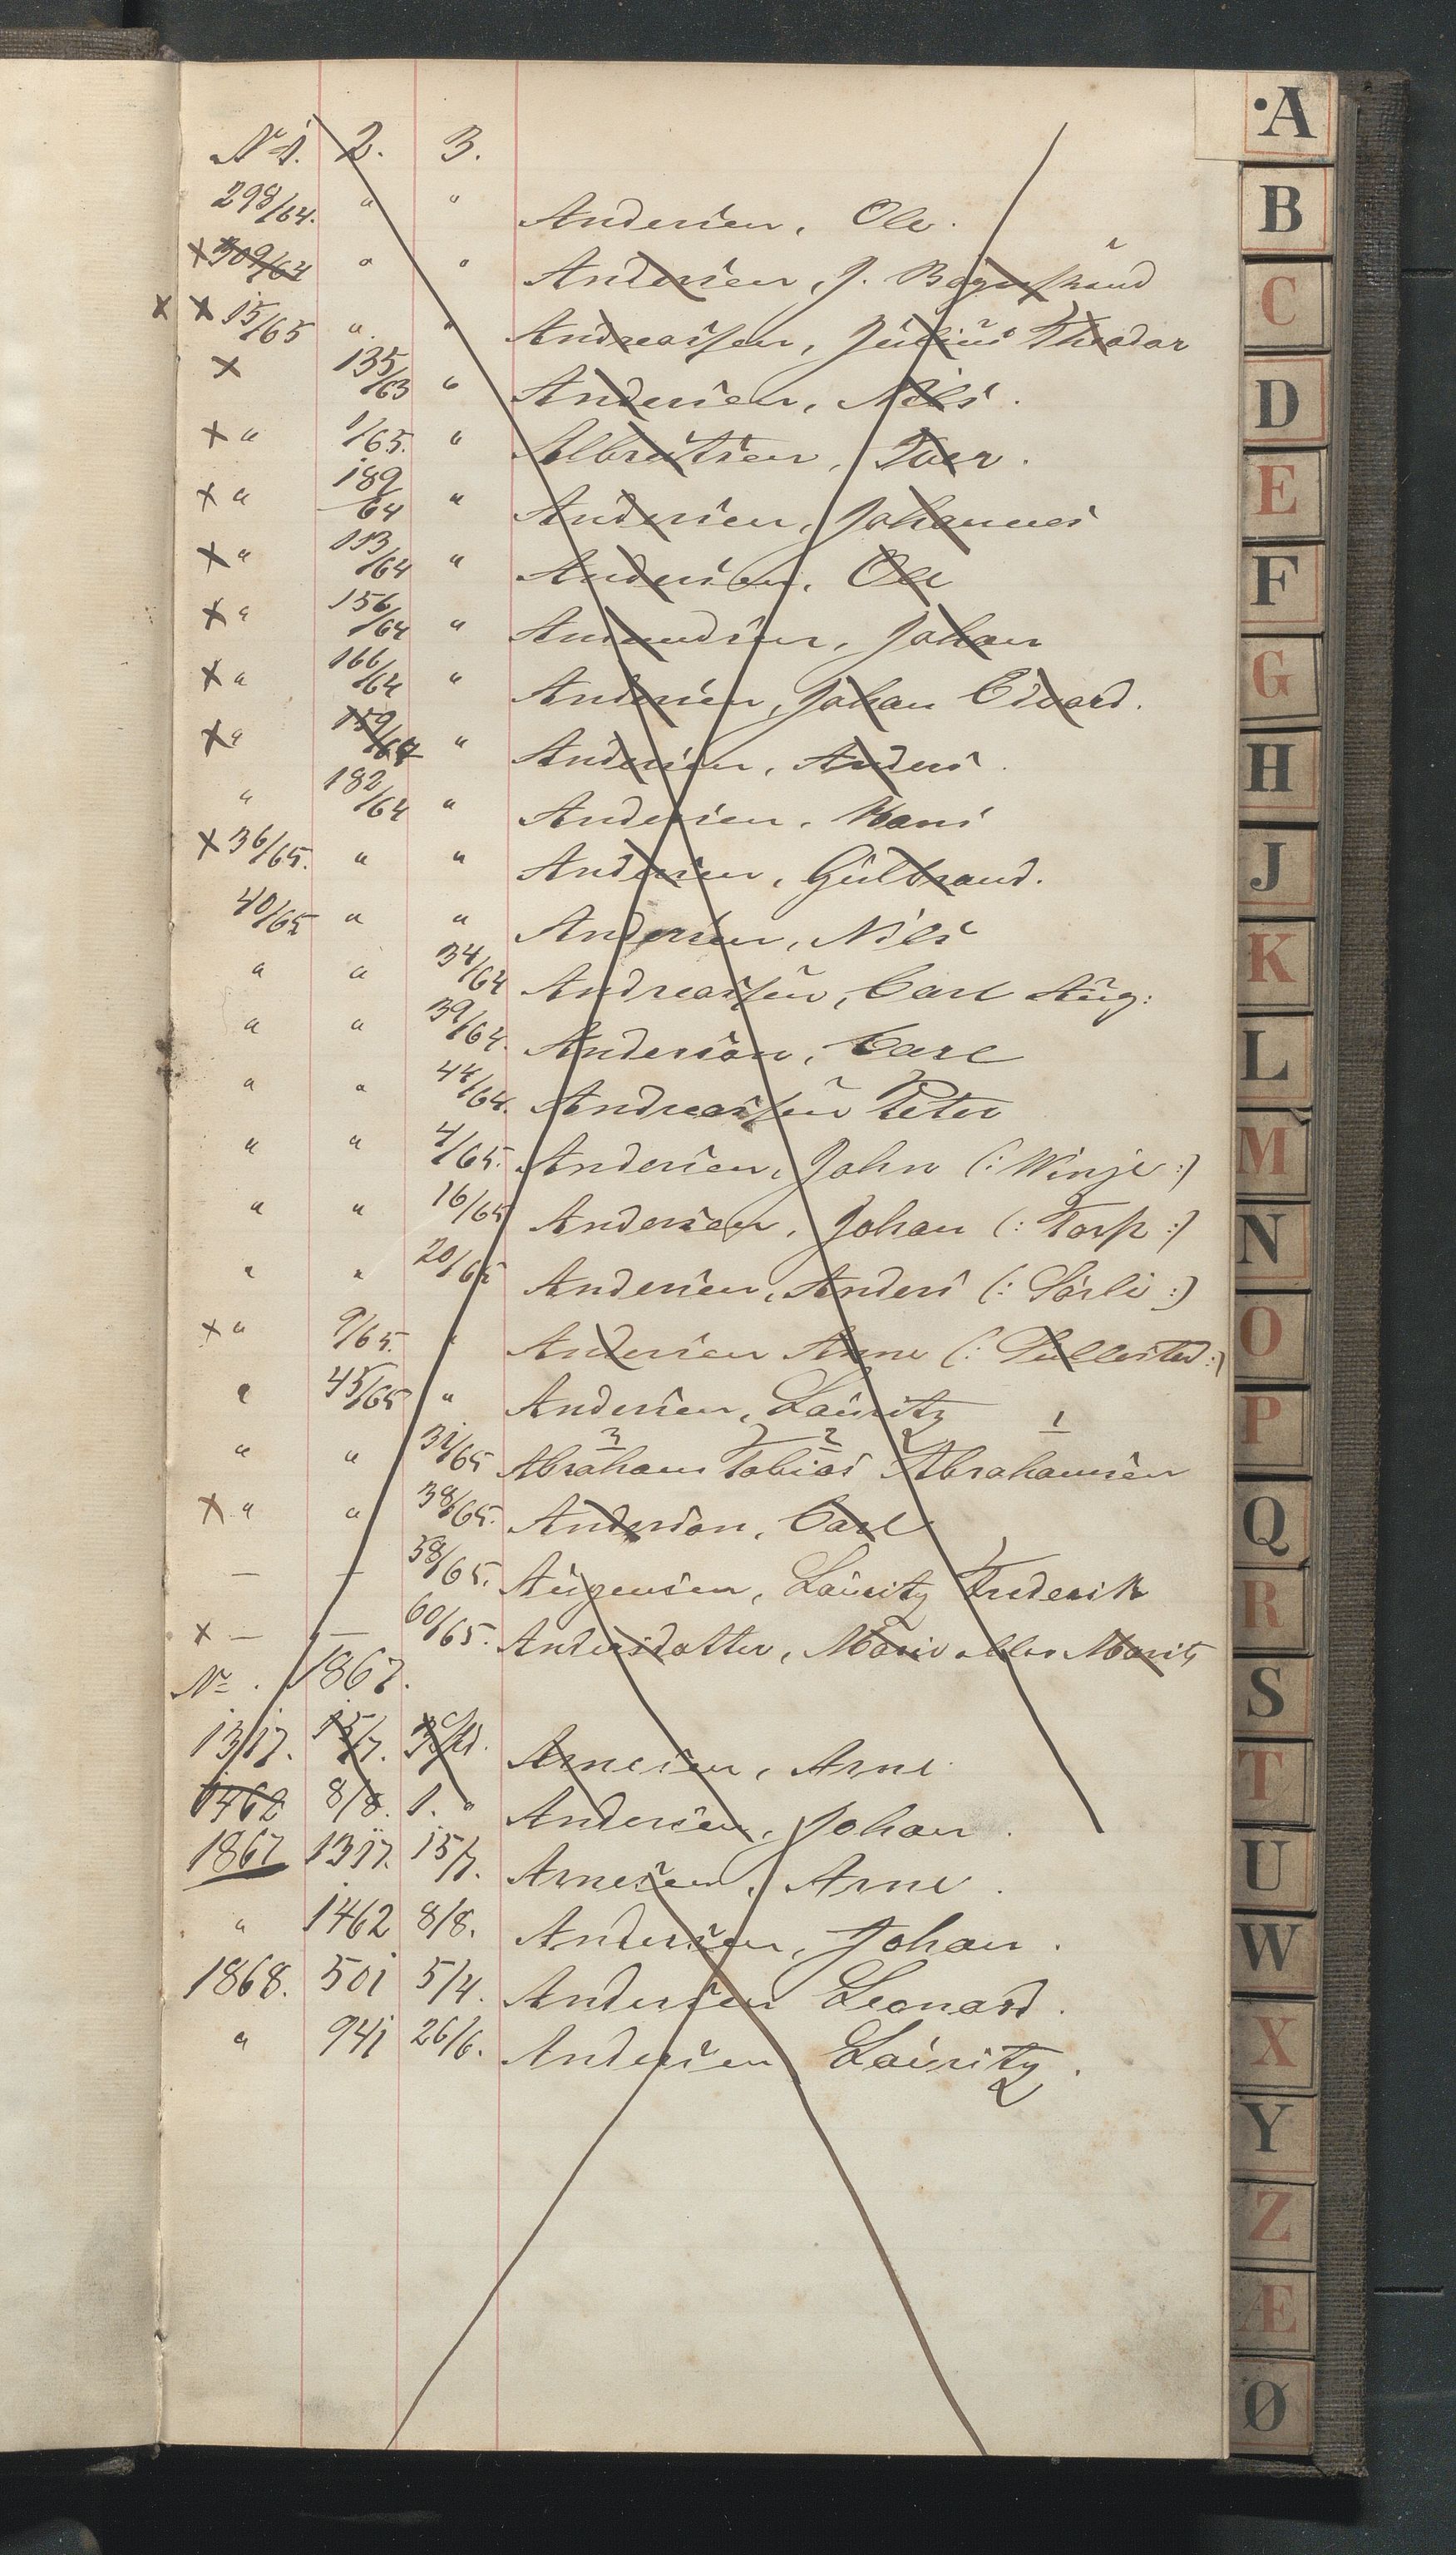 No 1. 2. 3.
298/64. " " Andersen, Ole.
x 309/64 " " Andersen, J. Bøgestrand
x x 15/65 " " Andreassen, Julius Theodor
x 135/63 " Andersen, Nils.
x " 1/65. " Albretsen, Iver.
x " 189/64 " Andersen, Johannes
x " 113/64 " Andersen, Ole
x " 156/64 " Amundsen, Johan
x " 166/64 " Andersen, Johan Edvard.
x " 159/64 " Andersen, Anders.
" 182/64 " Andersen, Hans
x 36/65. " " Andersen, Gulbrand.
40/65 " " Andersen, Nils
" " 34/64 Andreassen, Carl Aug:
" " 39/64. Anderson, Carl
" " 44/64. Andreassen Peter
" " 4/65. Andersen, John (: Winje :)
" " 16/65 Andersen, Johan (: Torp :)
" " 20/65 Andersen, Anders (: Sørli :)
x " 9/65. " Andersen Arne (: Sullestad :)
" 45/65 " Andersen, Lauritz
" " 31/65 Abraham Tobias Abrahamsen
3 2 1
x " " 38/65. Anderson, Carl
— — 58/65. Augensen, Lauritz Frederik
x — — 60/65. Andersdatter, Marie eller Marit
No. 1867.
1317. 15/7. Arnesen, Arne
1462 8/8. 1. " Andersen, Johan.
1867 1317. 15/7. Arnesen, Arne.
" 1462 8/8. Andersen, Johan.
1868. 501 5/4. Andersen Leonard.
" 941 26/6. Andersen Lauritz.
A
B
C
D
E
F
G
H
J
K
L
M
N
O
P
Q
R
S
T
U
W
X
Y
Z
Æ
Ø